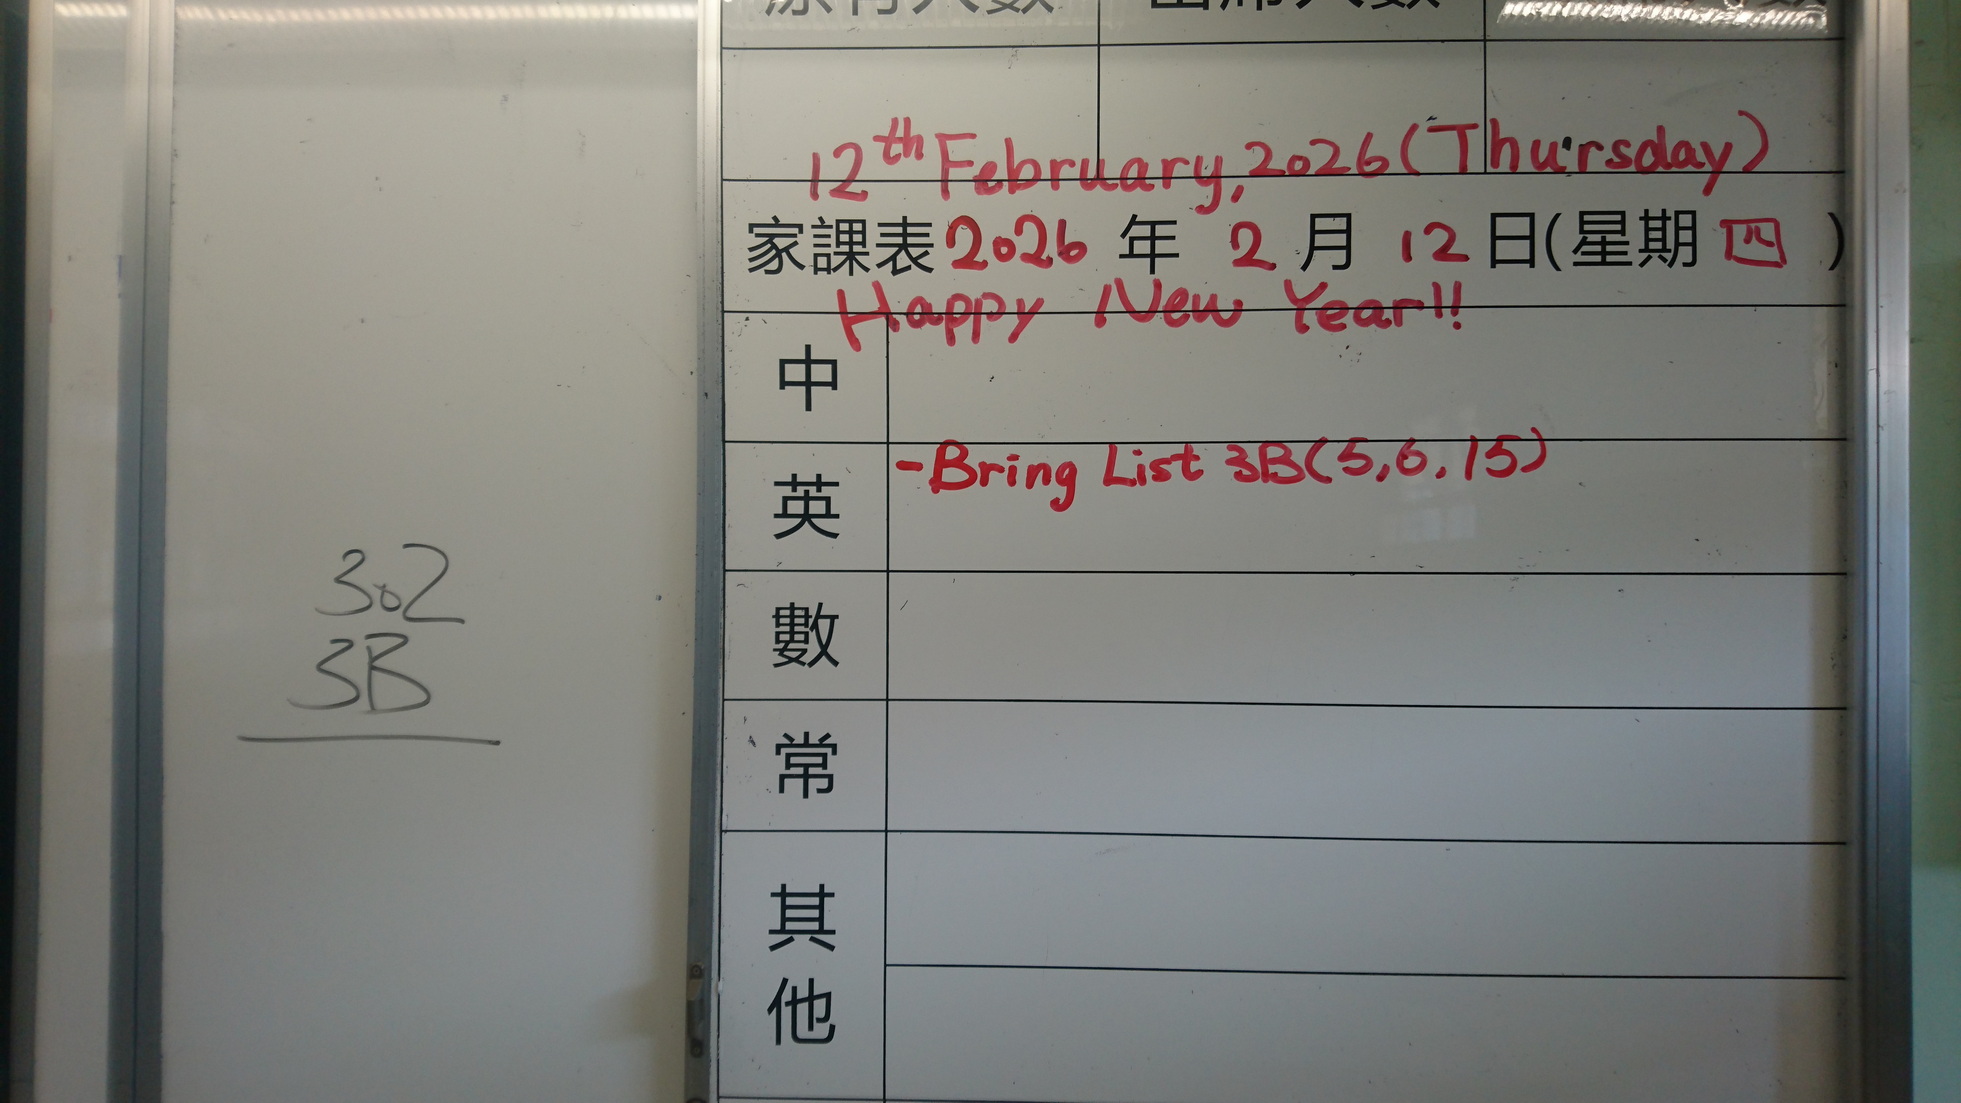 原有人數 出席人數 數
12th February, 2026 (Thursday)
家課表 2026 年 2 月 12 日(星期 四 )
Happy New Year!!
中
英 -Bring List 3B(5,6,15)
數
常
其他
302
3B